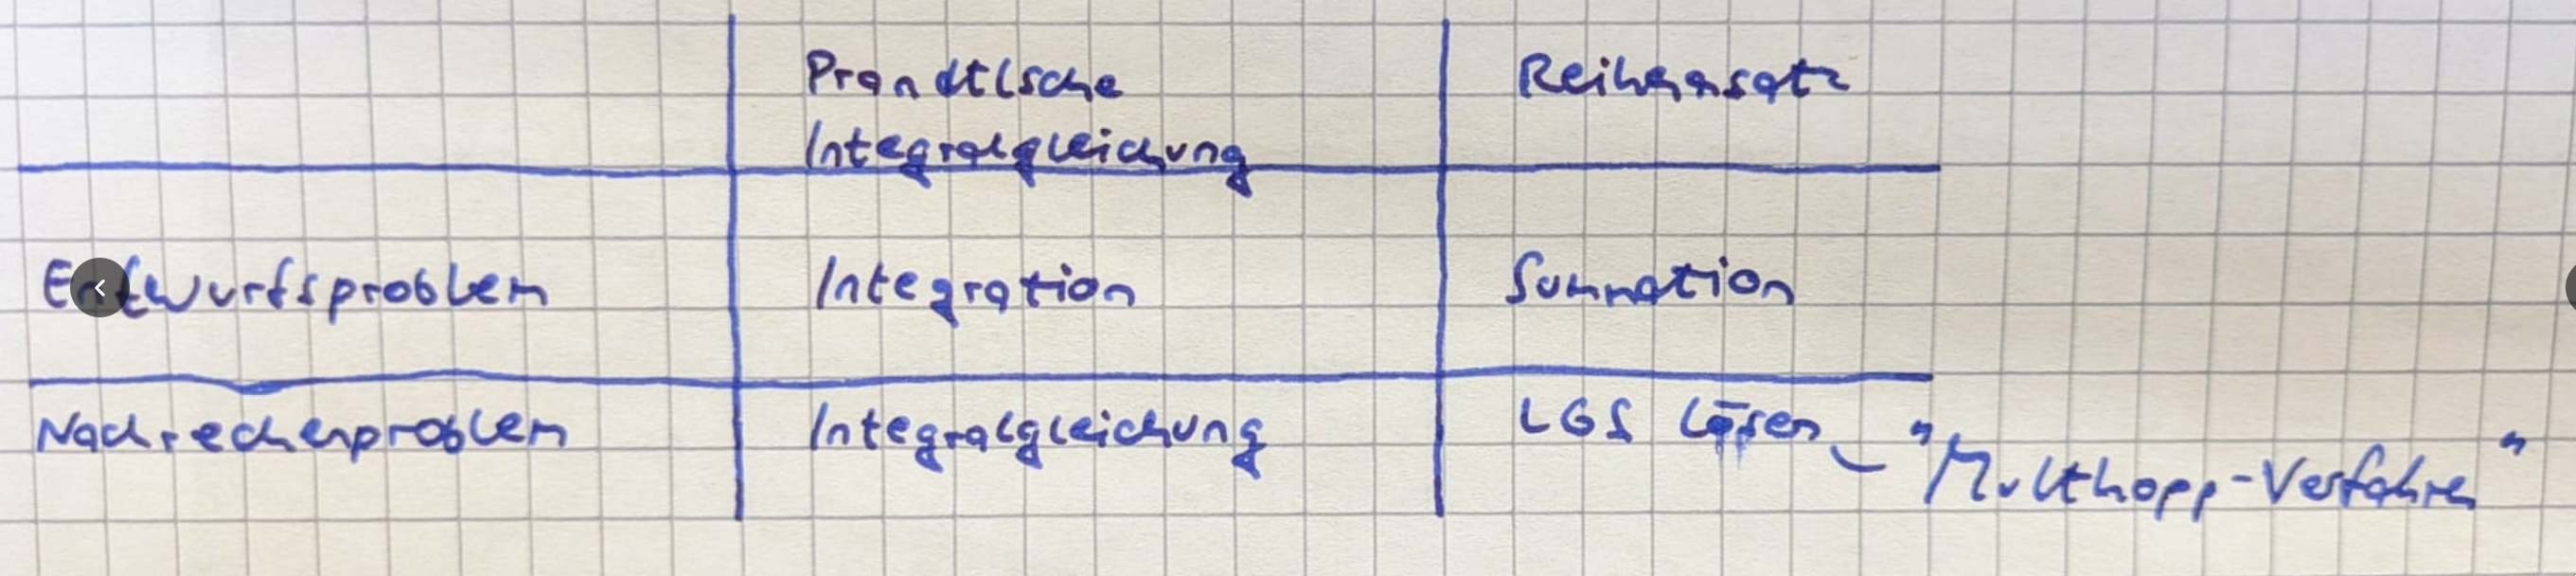 Prandtlsche Reihenansatz
Integralgleichung
Entwurfsproblem Integration Summation
Nachrechenproblem Integralgleichung LGS lösen "Multhopp-Verfahren"